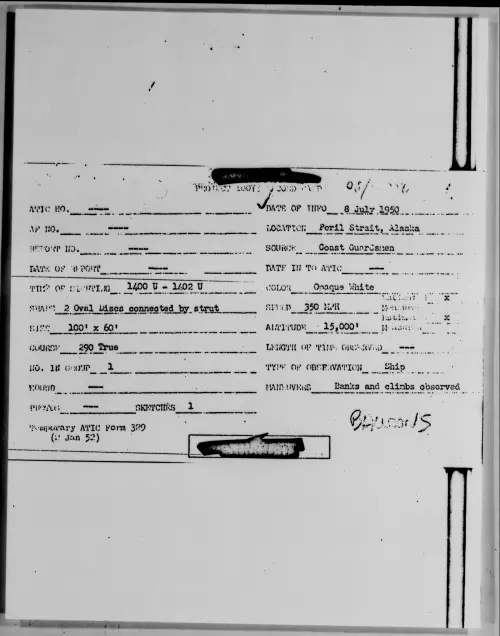 PROJECT 10073 RECORD CARD
ATIC NO. ---- DATE OF INFO 8 July 1950
AF NO. ---- LOCATION Peril Strait, Alaska
REPORT NO. ---- SOURCE Coast Guardsmen
DATE OF REPORT ---- DATE IN TO ATIC ----
TIME OF SIGHTING 1400 U - 1402 U COLOR Opaque White
SHAPE 2 Oval Discs connected by strut SPEED 350 MPH X
SIZE 100' x 60' ALTITUDE 15,000' X
COURSE 290 True LENGTH OF TIME OBSERVED ----
NO. IN GROUP 1 TYPE OF OBSERVATION Ship
SOUND ---- MANEUVERS Banks and climbs observed
PHOTOS ---- SKETCHES 1
Temporary ATIC Form 329
(2 Jan 52)
BALLOONS